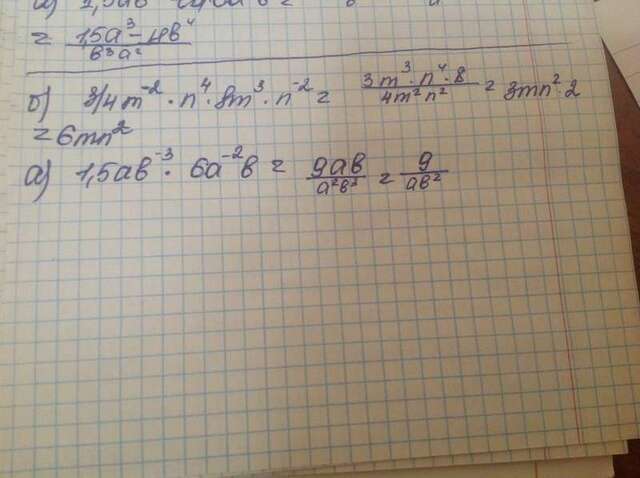 = 1,5a³ - 4b⁴ / b³a²
б) 3/4m⁻² · n⁴ · 8m³ · n⁻² = 3m³ · n⁴ · 8 / 4m²n² = 3mn² · 2
= 6mn²
а) 1,5ab⁻³ · 6a⁻²b = 9ab / a²b³ = 9 / ab²